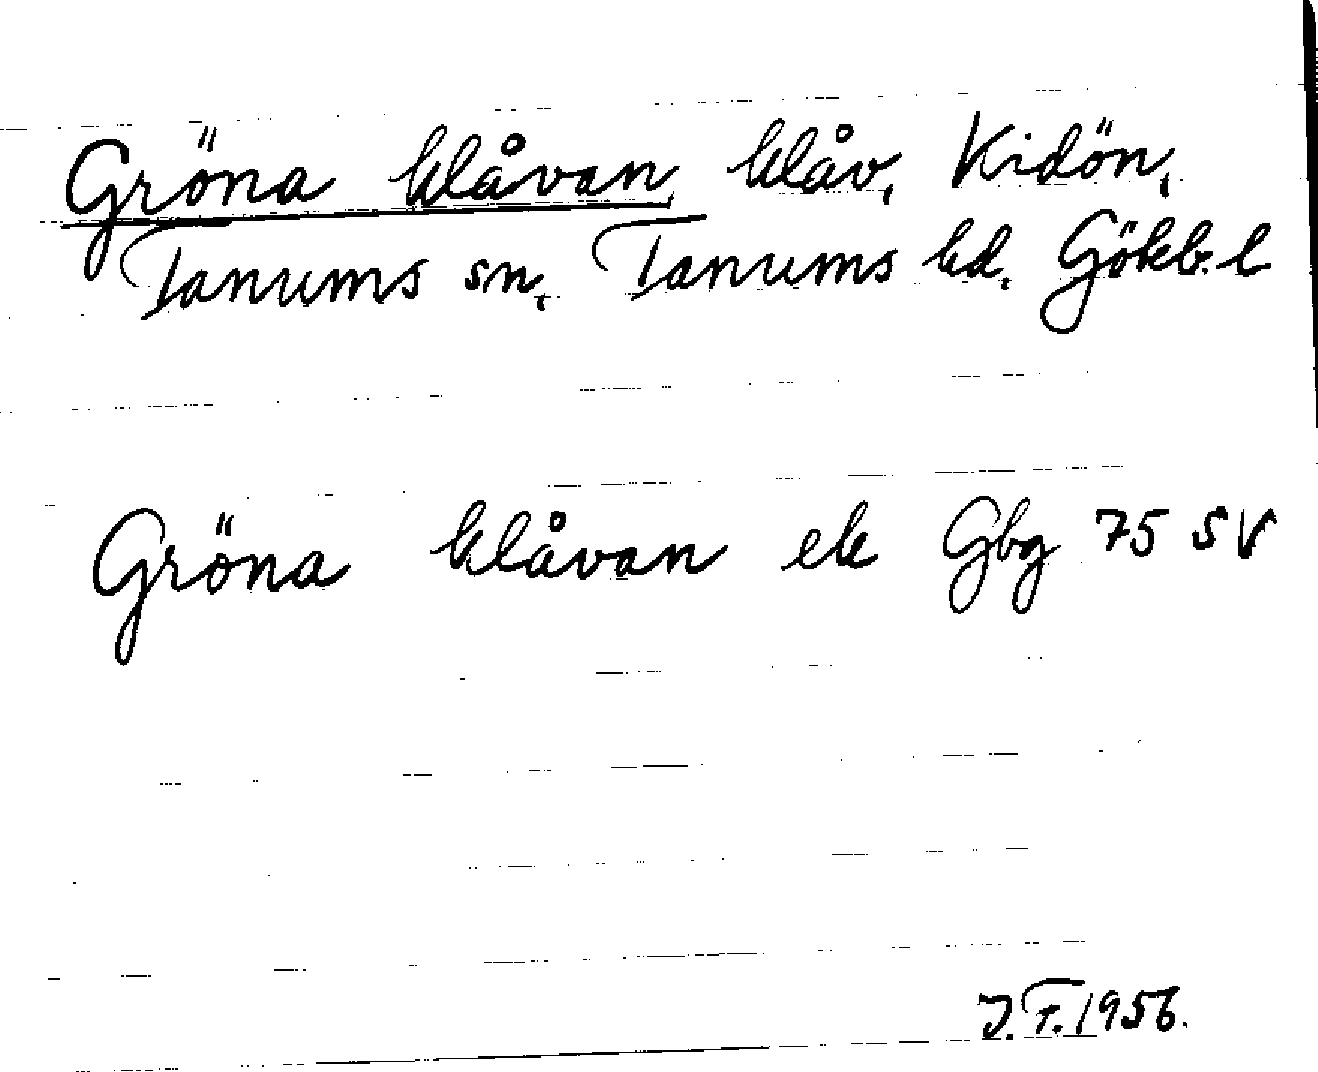 Gröna klåvan, klåv, Kidön,
Tanums sn, Tanums hd. Gökb. l
Gröna klåvan ek Gbg 75 SV
J.F. 1956.